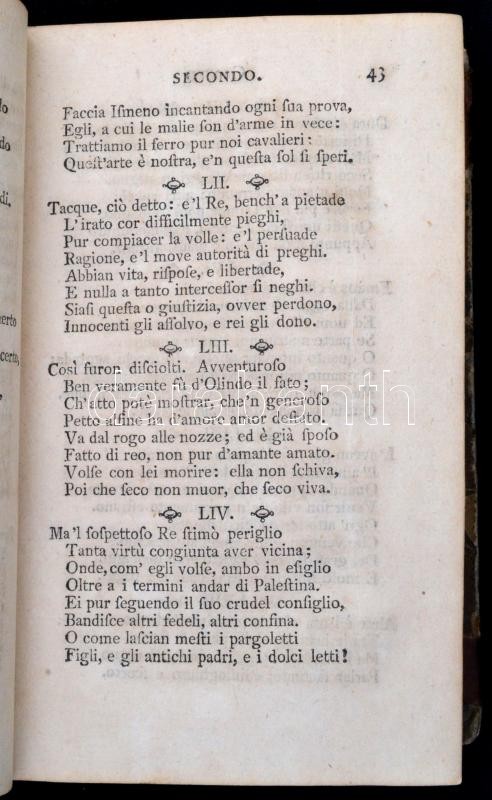 SECONDO. 43
Faccia Iſmeno incantando ogni ſua prova,
Egli, a cui le malie ſon d'arme in vece:
Trattiamo il ferro pur noi cavalieri:
Queſt'arte è noſtra, e'n queſta ſol ſi ſperi.
LII.
Tacque, ciò detto: e'l Re, bench'a pietade
L'irato cor difficilmente pieghi,
Pur compiacer la volle: e'l perſuade
Ragione, e'l move autorità di preghi.
Abbian vita, riſpoſe, e libertade,
E nulla a tanto interceſſor ſi neghi.
Siaſi queſta o giuſtizia, ovver perdono,
Innocenti gli aſſolvo, e rei gli dono.
LIII.
Così furon diſciolti. Avventuroſo
Ben veramente fù d'Olindo il fato;
Ch'atto potè moſtrar, che'n generoſo
Petto alfine ha d'amore amor deſtato.
Va dal rogo alle nozze; ed è già ſpoſo
Fatto di reo, non pur d'amante amato.
Volſe con lei morire: ella non ſchiva,
Poi che ſeco non muor, che ſeco viva.
LIV.
Ma'l ſoſpettoſo Re ſtimò periglio
Tanta virtù congiunta aver vicina;
Onde, com' egli volſe, ambo in eſiglio
Oltre a i termini andar di Paleſtina.
Ei pur ſeguendo il ſuo crudel conſiglio,
Bandiſce altri fedeli, altri confina.
O come laſcian meſti i pargoletti
Figli, e gli antichi padri, e i dolci letti!
darabanth